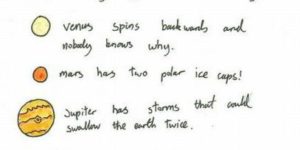 venus spins backwards and
nobody knows why.
mars has two polar ice caps!
Jupiter has storms that could
swallow the earth twice.